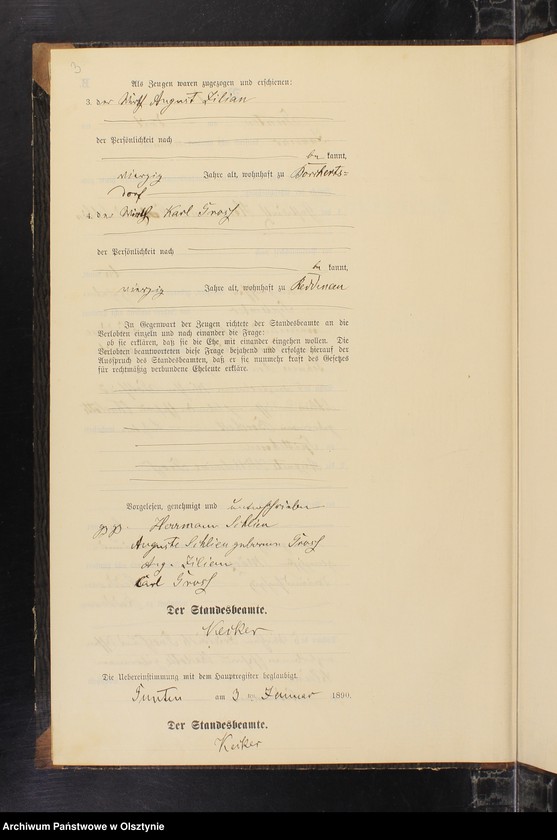 3
Als Zeugen waren zugezogen und erschienen:
3. der Wirth August Zilian
der Persönlichkeit nach
be kannt,
vierzig Jahre alt, wohnhaft zu Borcherts=
dorf
4. der Wirth Karl Grosch
der Persönlichkeit nach
be kannt,
vierzig Jahre alt, wohnhaft zu Reddenau
In Gegenwart der Zeugen richtete der Standesbeamte an die
Verlobten einzeln und nach einander die Frage:
ob sie erklären, daß sie die Ehe mit einander eingehen wollen. Die
Verlobten beantworteten diese Frage bejahend und erfolgte hierauf der
Ausspruch des Standesbeamten, daß er sie nunmehr kraft des Gesetzes
für rechtmäßig verbundene Eheleute erkläre.
Vorgelesen, genehmigt und unterschrieben
pp. Herrmann Schlien
Auguste Schlien geborene Grosch
Aug. Zilian
Carl Grosch
Der Standesbeamte.
Die Uebereinstimmung mit dem Hauptregister beglaubigt.
am 3 ten Januar 1890.
Der Standesbeamte.
Archiwum Państwowe w Olsztynie